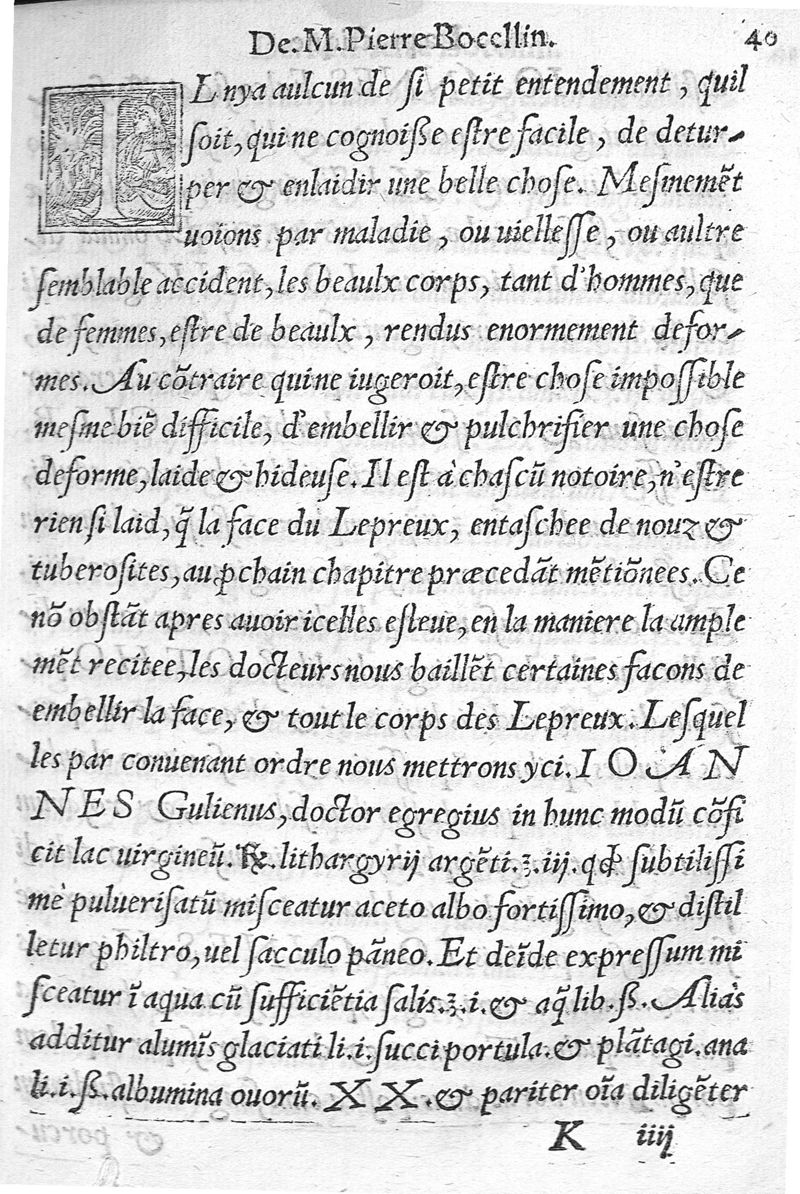 De.M.Pierre Bocellin. 40
IL nya aulcun de ſi petit entendement, quil
ſoit, qui ne cognoiße eſtre facile, de detur-
per & enlaidir une belle choſe. Meſmemẽt
uoions par maladie, ou uielleſſe, ou aultre
ſemblable accident, les beaulx corps, tant d'hommes, que
de femmes, eſtre de beaulx, rendus enormement defor-
mes. Au cõtraire qui ne iugeroit, eſtre choſe impoſſible
meſme biẽ difficile, d'embellir & pulchrifier une choſe
deforme, laide & hideuſe. Il eſt à chaſcũ notoire, n'eſtre
rien ſi laid, q̃ la face du Lepreux, entaſchee de nouz &
tuberoſites, au ꝓchain chapitre præcedãt mẽtiõnees. Ce
nõ obſtãt apres auoir icelles eſleue, en la maniere la ample
mẽt recitee, les docteurs nous baillẽt certaines facons de
embellir la face, & tout le corps des Lepreux. Leſquel
les par conuenant ordre nous mettrons yci. I O A N
N E S Gulienus, doctor egregius in hunc modũ cõfi
cit lac uirgineũ. ℞. lithargyrij argẽti.ʒ.iij. qđ ſubtiliſſi
mè pulueriſatũ miſceatur aceto albo fortiſſimo, & diſtil
letur philtro, uel ſacculo pãneo. Et deĩde expreſſum mi
ſceatur ĩ aqua cũ ſufficiẽtia ſalis.ʒ.i. & aq̃ lib.ß. Aliàs
additur alumĩs glaciati li.i. ſucci portula. & plãtagi. ana
li.i.ß. albumina ouorũ. X X. & pariter oĩa diligẽter
K iiij